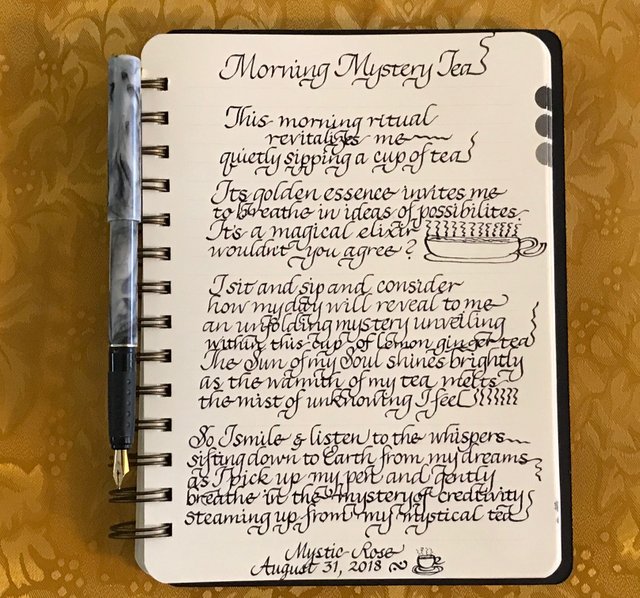 Morning Mystery Tea
This morning ritual
revitalizes me
quietly sipping a cup of tea
Its golden essence invites me
to breathe in ideas of possibilites.
It's a magical elixir
wouldn't you agree?
I sit and sip and consider
how my day will reveal to me
an unfolding mystery unveiling
within this cup of lemon ginger tea
The Sun of my Soul shines brightly
as the warmth of my tea melts
the mist of unknowing I feel
So I smile & listen to the whispers
sifting down to Earth from my dreams
as I pick up my pen and gently
breathe in the mystery of creativity
steaming up from my mystical tea
Mystic Rose
August 31, 2018